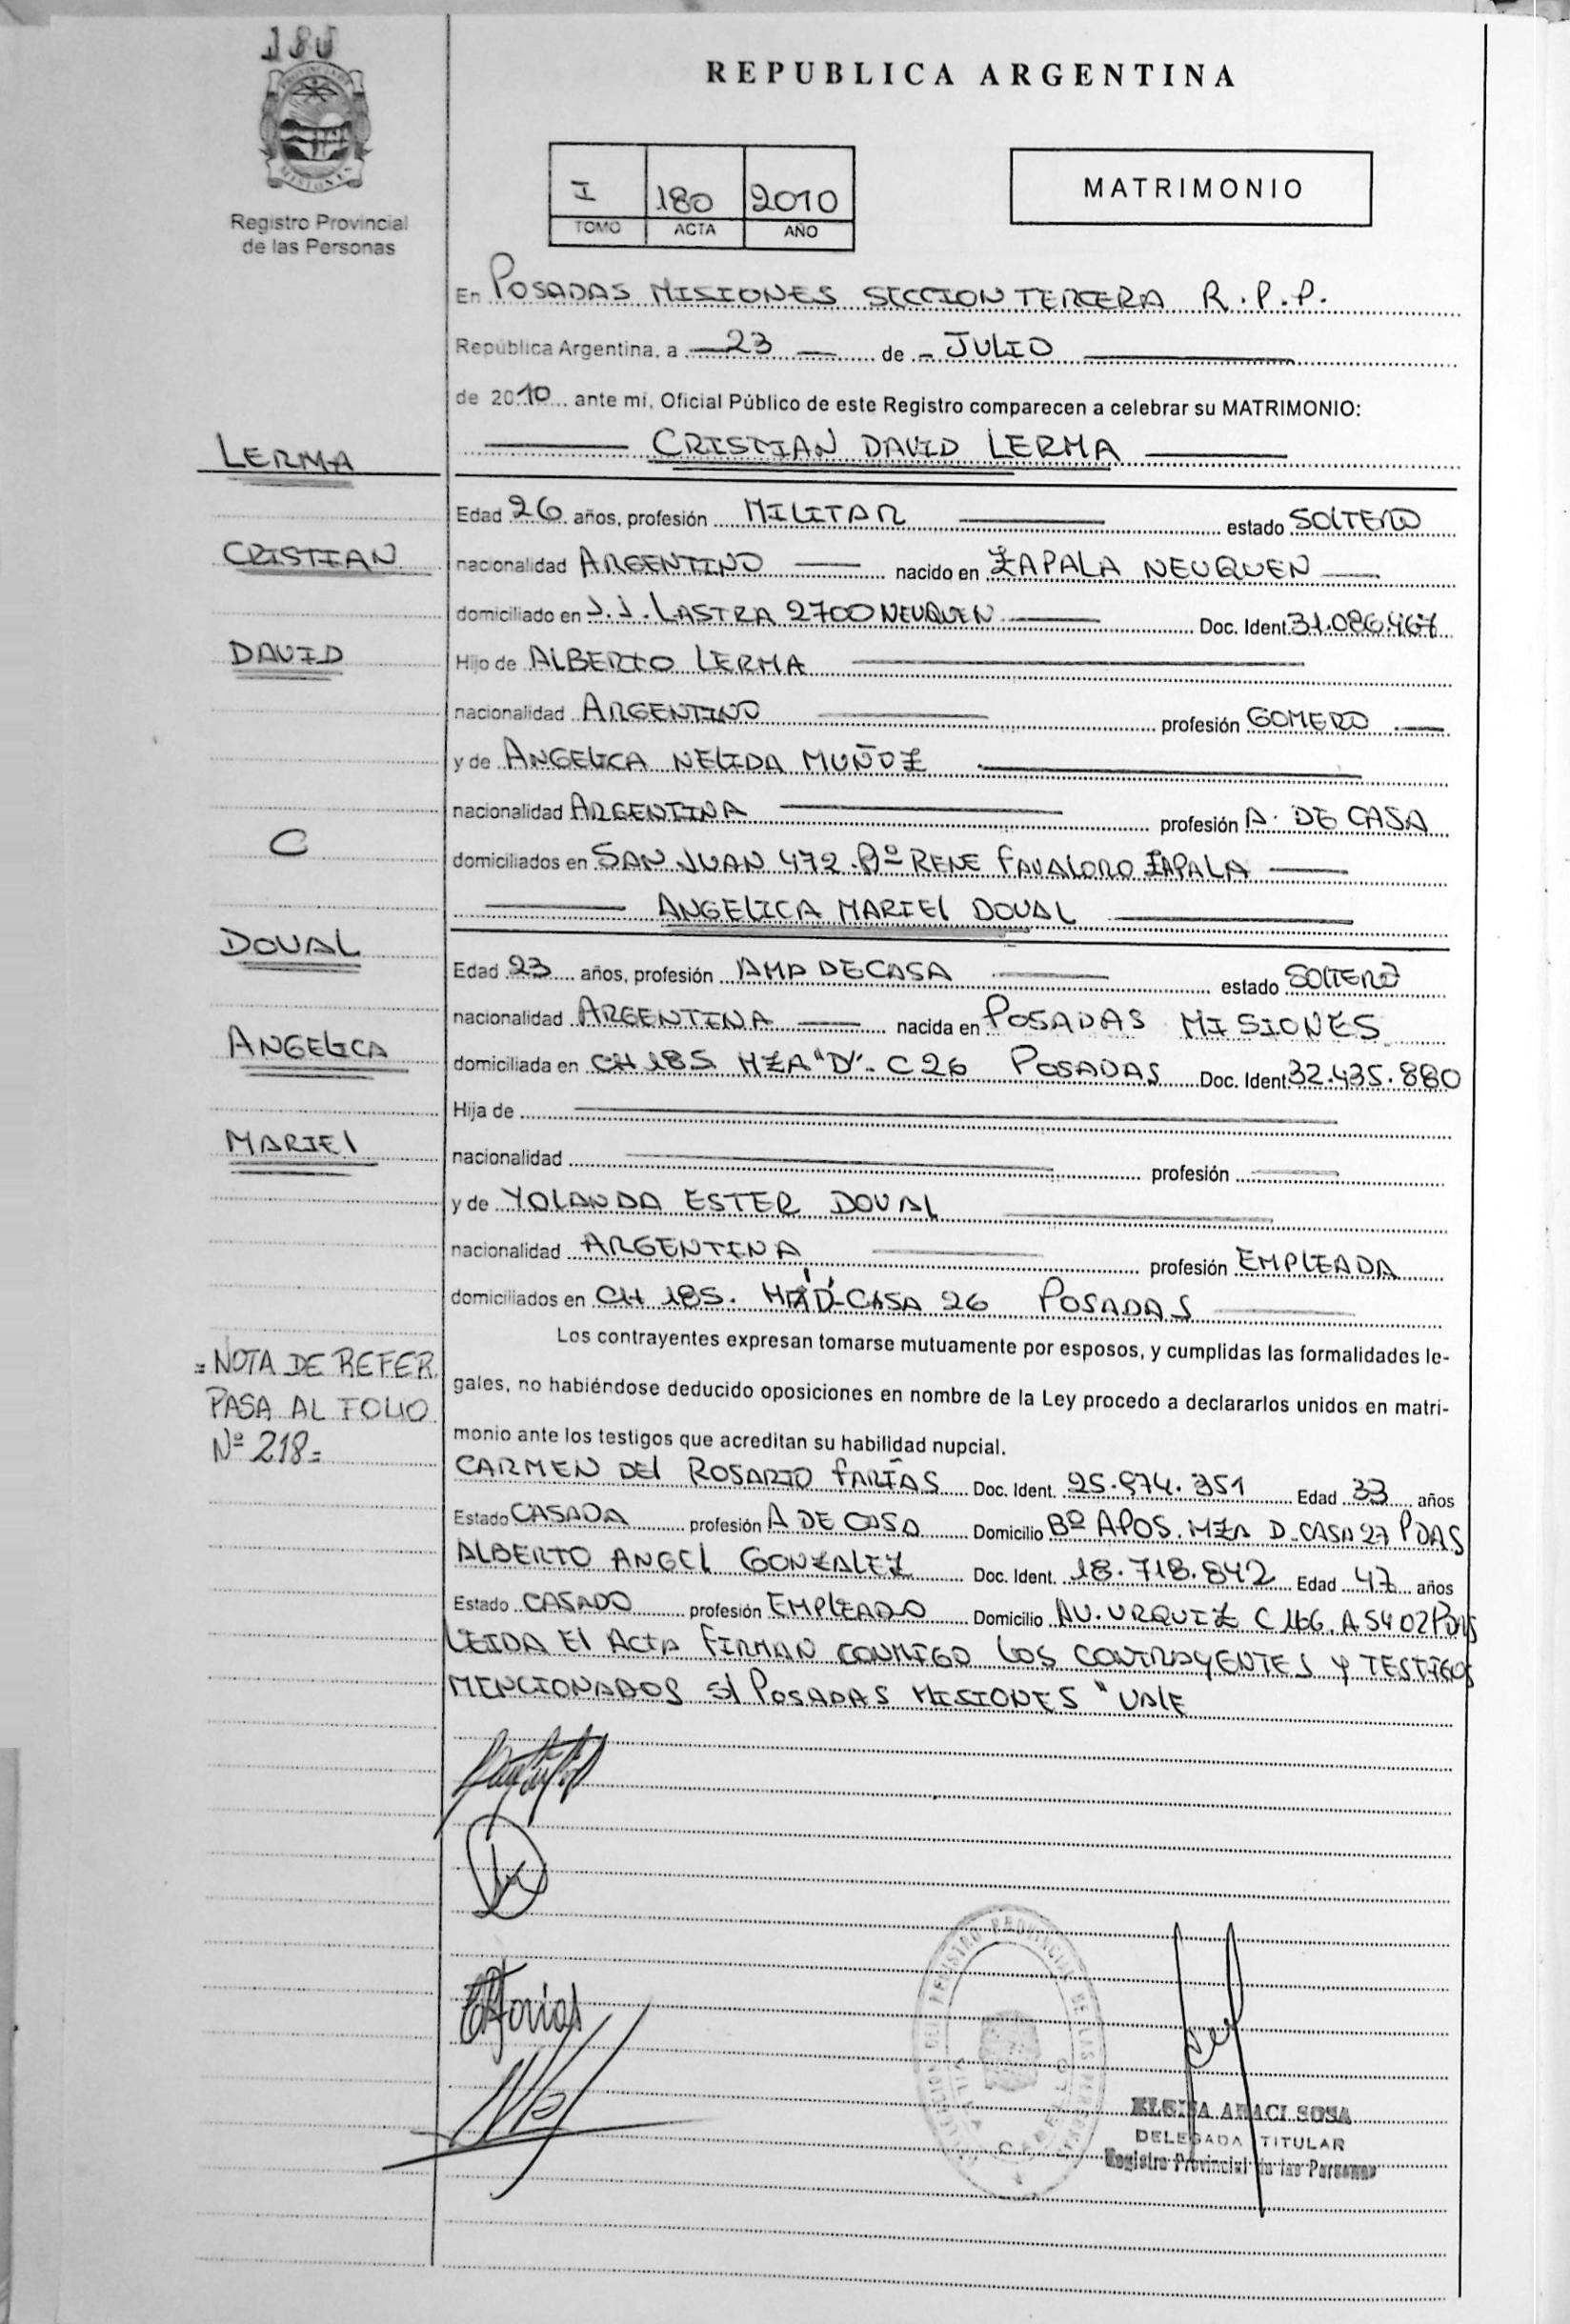 180
PROVINCIA DE
MISIONES
Registro Provincial
de las Personas
REPUBLICA ARGENTINA
I 180 2010
TOMO ACTA AÑO
MATRIMONIO
En POSADAS MISIONES SECCION TERCERA R.P.P.
República Argentina, a 23 de JULIO
de 2010 ante mí, Oficial Público de este Registro comparecen a celebrar su MATRIMONIO:
CRISTIAN DAVID LERMA
LERMA
Edad 26 años, profesión MILITAR estado SOLTERO
CRISTIAN
nacionalidad ARGENTINO nacido en ZAPALA NEUQUEN
domiciliado en J.J. LASTRA 2700 NEUQUEN Doc. Ident. 31.086.467
DAVID
Hijo de ALBERTO LERMA
nacionalidad ARGENTINO profesión GOMERO
y de ANGELICA NELIDA MUÑOZ
nacionalidad ARGENTINA profesión A. DE CASA
C
domiciliados en SAN JUAN 472 Bº RENE FAVALORO ZAPALA
ANGELICA MARIEL DOVAL
DOVAL
Edad 23 años, profesión AMA DE CASA estado SOLTERA
nacionalidad ARGENTINA nacida en POSADAS MISIONES
ANGELICA
domiciliada en CH 185 MZA "D" - C 26 POSADAS Doc. Ident. 32.435.880
Hija de
MARIEL
nacionalidad profesión
y de YOLANDA ESTER DOVAL
nacionalidad ARGENTINA profesión EMPLEADA
domiciliados en CH 185. MZ "D" CASA 26 POSADAS
Los contrayentes expresan tomarse mutuamente por esposos, y cumplidas las formalidades le-
gales, no habiéndose deducido oposiciones en nombre de la Ley procedo a declararlos unidos en matri-
monio ante los testigos que acreditan su habilidad nupcial.
= NOTA DE REFER.
PASA AL FOLIO
Nº 218=
CARMEN DEL ROSARIO FARIAS Doc. Ident. 25.974.351 Edad 33 años
Estado CASADA profesión A DE CASA Domicilio Bº A.POS. MZA D CASA 27 PDAS
ALBERTO ANGEL GONZALEZ Doc. Ident. 18.718.842 Edad 47 años
Estado CASADO profesión EMPLEADO Domicilio AV. URQUIZ C 166. A 5402 PDAS
LEIDA El ACTA FIRMAN CONMIGO LOS CONTRAYENTES Y TESTIGOS
MENCIONADOS S/ POSADAS MISIONES "VALE
REGISTRO PROVINCIAL DE LAS PERSONAS
ELGIZA ARACI SOSA
DELEGADA TITULAR
Registro Provincial de las Personas